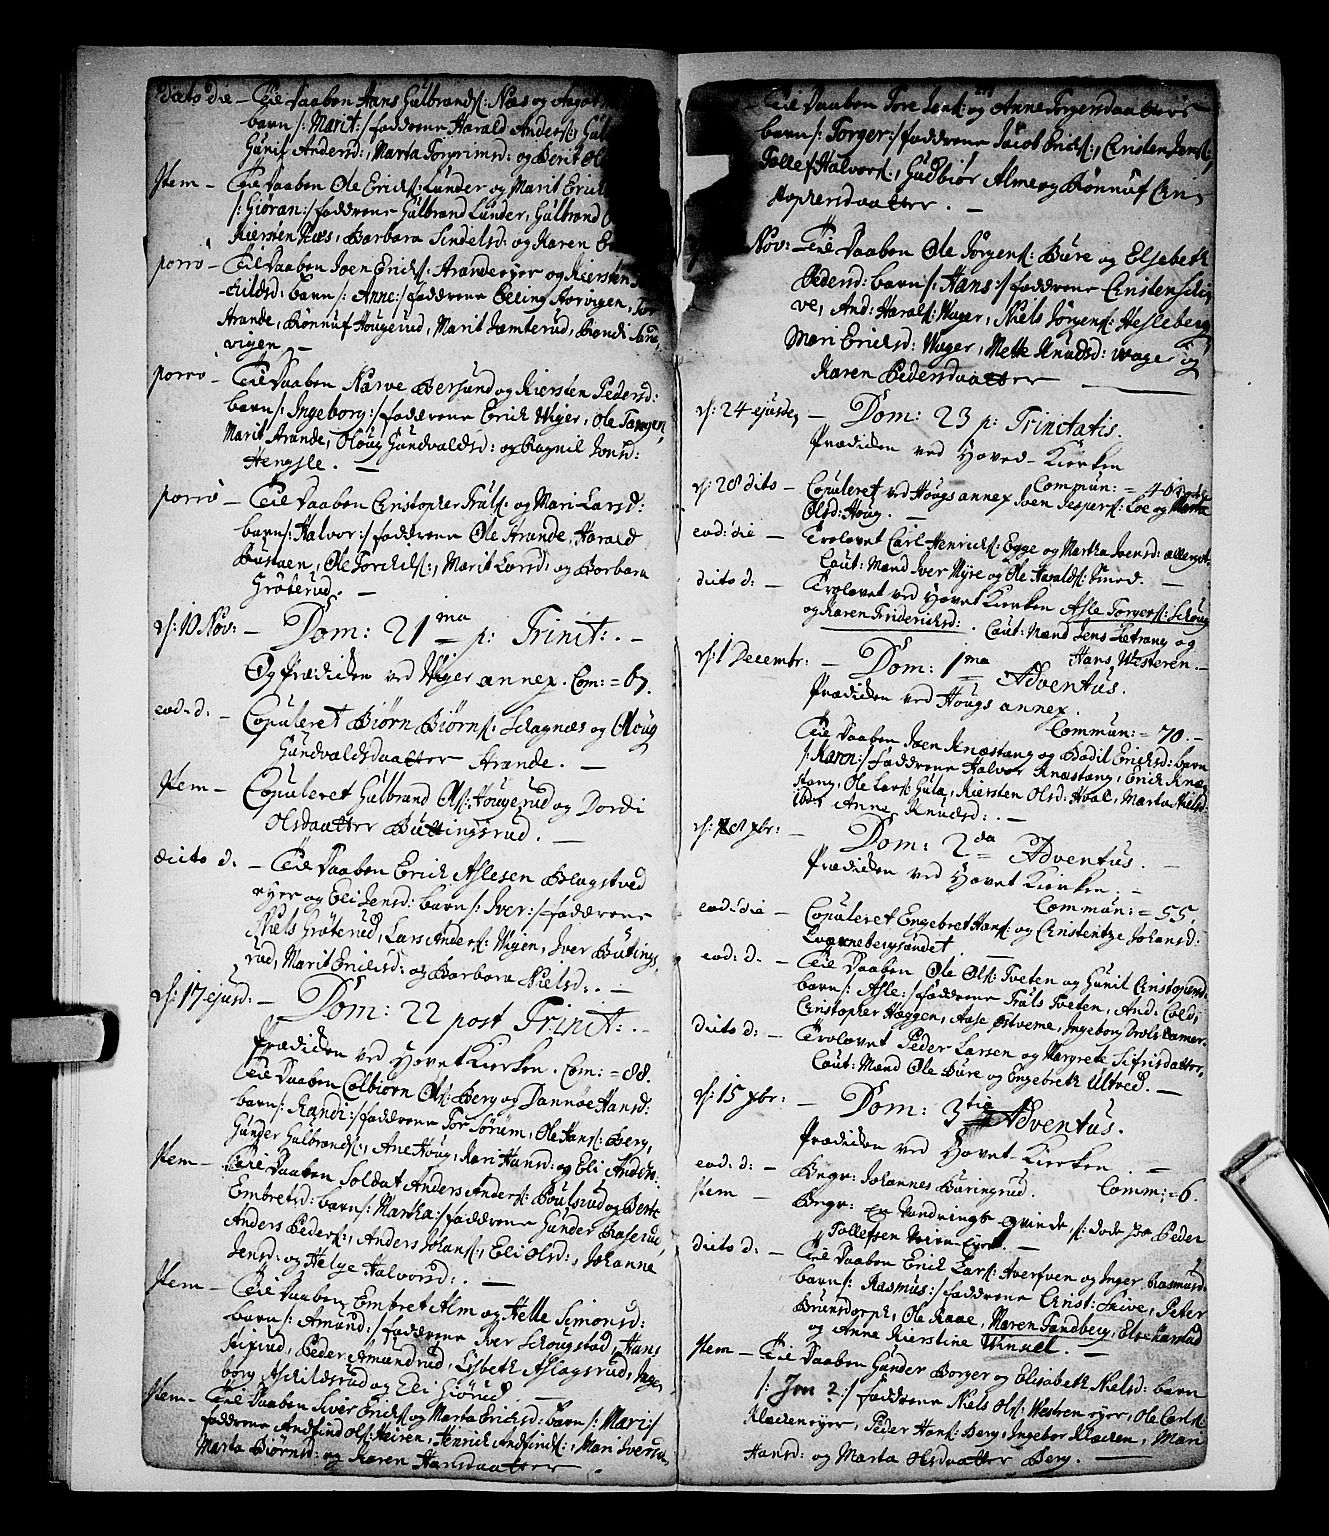 dicto die – Til Daaben Hans Gulbrands: Næs og Aagot
barn /: Marit :/ faddrene Harald Anders:, Gul
Gunil Andersd:, Marta Torgrimsd: og Berit Ols
Item – Til Daaben Ole Ericks: Lunder og Marit Erick
/: Giøran :/ faddrene Gulbrand Lunder, Gulbrand
Kiersten Næs, Barbara Sindelsd: og Karen
porro – Til Daaben Joen Ericks: Arandeeyer og Kiersten
-kildsd: barn /: Anne :/ faddrene Elling Horvigen, Tor
Arande, Rønnuf Hougerud, Marit Jamterud, Randi
vigen –
porro – Til Daaben Narve Bersund og Kiersten Pedersd:
barn /: Ingeborg :/ faddrene Erick Wiger, Ole Tangen,
Marit Arande, Oloug Gundvaldsd: og Ragnil Jonsd:
Hengsle. –
porro – Til Daaben Cristopher Truls: og Mari Larsd:
barn /: Halvor :/ faddrene Ole Arande, Harald
Bustaen, Ole Torkilds:, Marit Larsd: og Barbara
Grøterud. –
d: 10 Nov: – Dom: 21 ma p: Trinit: . –
Og Prædiken ved Wiger annex. Com: = 67.
eod. d: – Copuleret Biørn Biørns: Schagnæs og Oloug
Gundvaldsdaatter Arande. –
Item – Copuleret Gulbrand Ols: Hougerud og Dordi
Olsdaatter Buttingsrud. –
dicto d. – Til Daaben Erick Aslesen Blagstved
eyer og Eli Jensd: barn /: Iver :/ faddrene
Niels Grøterud, Lars Anders: Wigen, Iver Buttings
rud, Marit Ericksd: og Barbara Nielsd: . –
d: 17 ejusd: – Dom: 22 post Trinit: . –
Prædiken ved Hovet Kierken. Com: = 88.
Til Daaben Colbiørn Ols: Berg og Dannøe Hansd:
barn /: Randi :/ faddrene Tor Sørum, Ole Hans: Berg,
Gunder Gulbrands:, Ane Houg, Kari Hansd: og Eli Andersd:
Item – Til Daaben Soldat Anders Anders: Boulsrud og Berte
Embretsd: barn /: Martha :/ faddrene Gunder Raserud,
Anders Peders:, Anders Johans:, Eli Olsd:, Johanne
Jensd: og Helge Halvorsd: . –
Item – Til Daaben Embret Alm og Helle Simonsd:
barn /: Amund :/ faddrene Iver Schougstad, Hans
Peder Amundrud, Lisbeth Aslagsrud, Inge-
borg Askildsrud og Eli Giørud –
Item – Til Daaben Siver Ericks: og Marta Ericksd: barn /: Mari :/
faddrene Andfind Ols: Heiren, Henrick Andfinds:, Mari Iversd:,
Marta Biørnsd: og Karen Hansdaatter
Til Daaben Tore Jens: og Anne Torgersdaatters
barn /: Torger :/ faddrene Jacob Ericks:, Cristen Jens:,
Tollef Halvors:, Gudbiør Alme og Rønnuf Cris-
tophersdaatter. –
Nov: – Til Daaben Ole Jørgens: Bure og Elsebeth
Pedersd: barn /: Hans :/ faddrene Cristen Schi-
ve, And: Harals: Wager, Niels Jørgens: Hesleberg,
Mari Ericksd: Wager, Mette Knudsd: Wager og
Karen Pedersdaatter –
d: 24 ejusde, – Dom: 23 p: Trinitatis.
Prædiken ved Hoved-Kierken
Commun: = 40
d: 28 dito – Copuleret ved Hougs annex Iven Jespers: Loe og Marta
Olsd: Houg. –
eod: die – Trolovet Carl Henricks: Egge og Martha Joensd: allergot.
Caut: Mænd Iver Myre og Ole Haralds: Smed. –
dicto d: – Trolovet ved Hovet Kierken Asle Torgers: Schoug
og Karen Fridericksd: . Caut: Mænd Jens Letrang og
Hans Westeren. –
d: 1 Decembr: – Dom: 1 ma Adventus.
Prædiken ved Hougs annex.
Commun: = 70. –
Til Daaben Joen Knæstang og Bodil Ericksd: barn
/: Karen :/ faddrene Halvor Knæstang, Erick Knæ-
stang, Ole Lars: Gula, Kiersten Olsd: Hval, Marta Nielsd:
ibd: Anne Knudsd: . –
d: 8 xbr: – Dom: 2 da Adventus. –
Prædiken ved Hovet Kierken. –
Commun: = 55.
eod: die – Copuleret Engebret Hans: og Cristentze Johansd:
Qværnebergsundet –
eod: d. – Til Daaben Ole Ols: Tveten og Gunil Cristophersd:
barn /: Asle :/ faddrene Truls Tveten, And: Cold,
Cristopher Heggen, Aase Østverne, Ingeborg
dicto d: – Trolovet Peder Larsen og Margrete Sifrisdatter,
Caut: Mænd Ole Bure og Engebreth Ultved. –
d: 15 xbr: – Dom: 3 tia Adventus.
Prædiken ved Hovet Kierken. –
eod: d: – Bngr: Johannes Buringrud. Comm: = 6.
Item – Bngr: en Vandrings qvinde, /: døde paa Peder
Tollefsen . –
dicto d: – Til Daaben Erick Lars: Averfven og Inger Rasmusd:
barn /: Rasmus :/ faddrene Crist: Skive, Peter
Brunsdorph, Ole Raae, Maren Tandberg, Else Harstad
og Anne Kierstine Winnel. –
Item – Til Daaben Gunder Borger og Elisabeth Nielsd: barn
/: Jon ? :/ faddrene Niels Ols: Westren eyer, Ole Carls:
Klæken eyer, Peder Hans: Berg, Ingebor Klæken, Mari
Hansd: og Marta Olsdaatter Berg. –